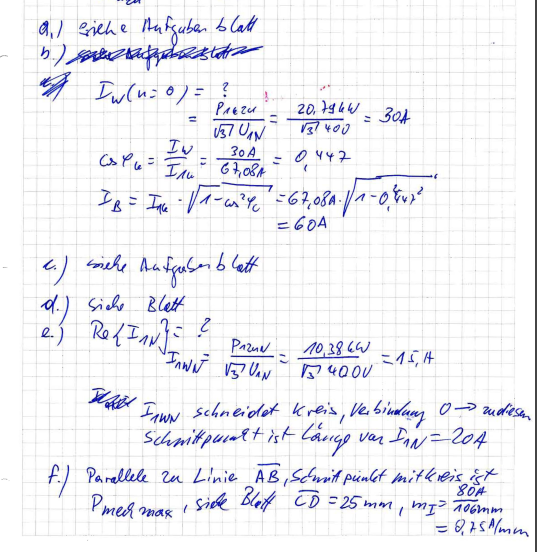 a.) siehe Aufgabenblatt
b.) siehe Aufgabenblatt
I_W(n=0) = ?
= P_1kzu / √3 U_1N = 20,79kW / √3 400 = 30A
cos φ_k = I_W / I_1k = 30A / 67,08A = 0,447
I_B = I_1k · √1-cos²φ_k = 67,08A · √1-0,447²
= 60A
c.) siehe Aufgabenblatt
d.) siehe Blatt
e.) Re{I_1N} = ?
I_1WN = P_1zuN / √3 U_1N = 10,38kW / √3 400V = 15A
I_1WN schneidet Kreis, Verbindung 0 → zu diesen
Schnittpunkt ist Länge von I_1N = 20A
f.) Parallele zu Linie AB, Schnittpunkt mit Kreis ist
P_mech max, siehe Blatt CD = 25mm, m_I = 80A / 106mm
= 0,75A/mm